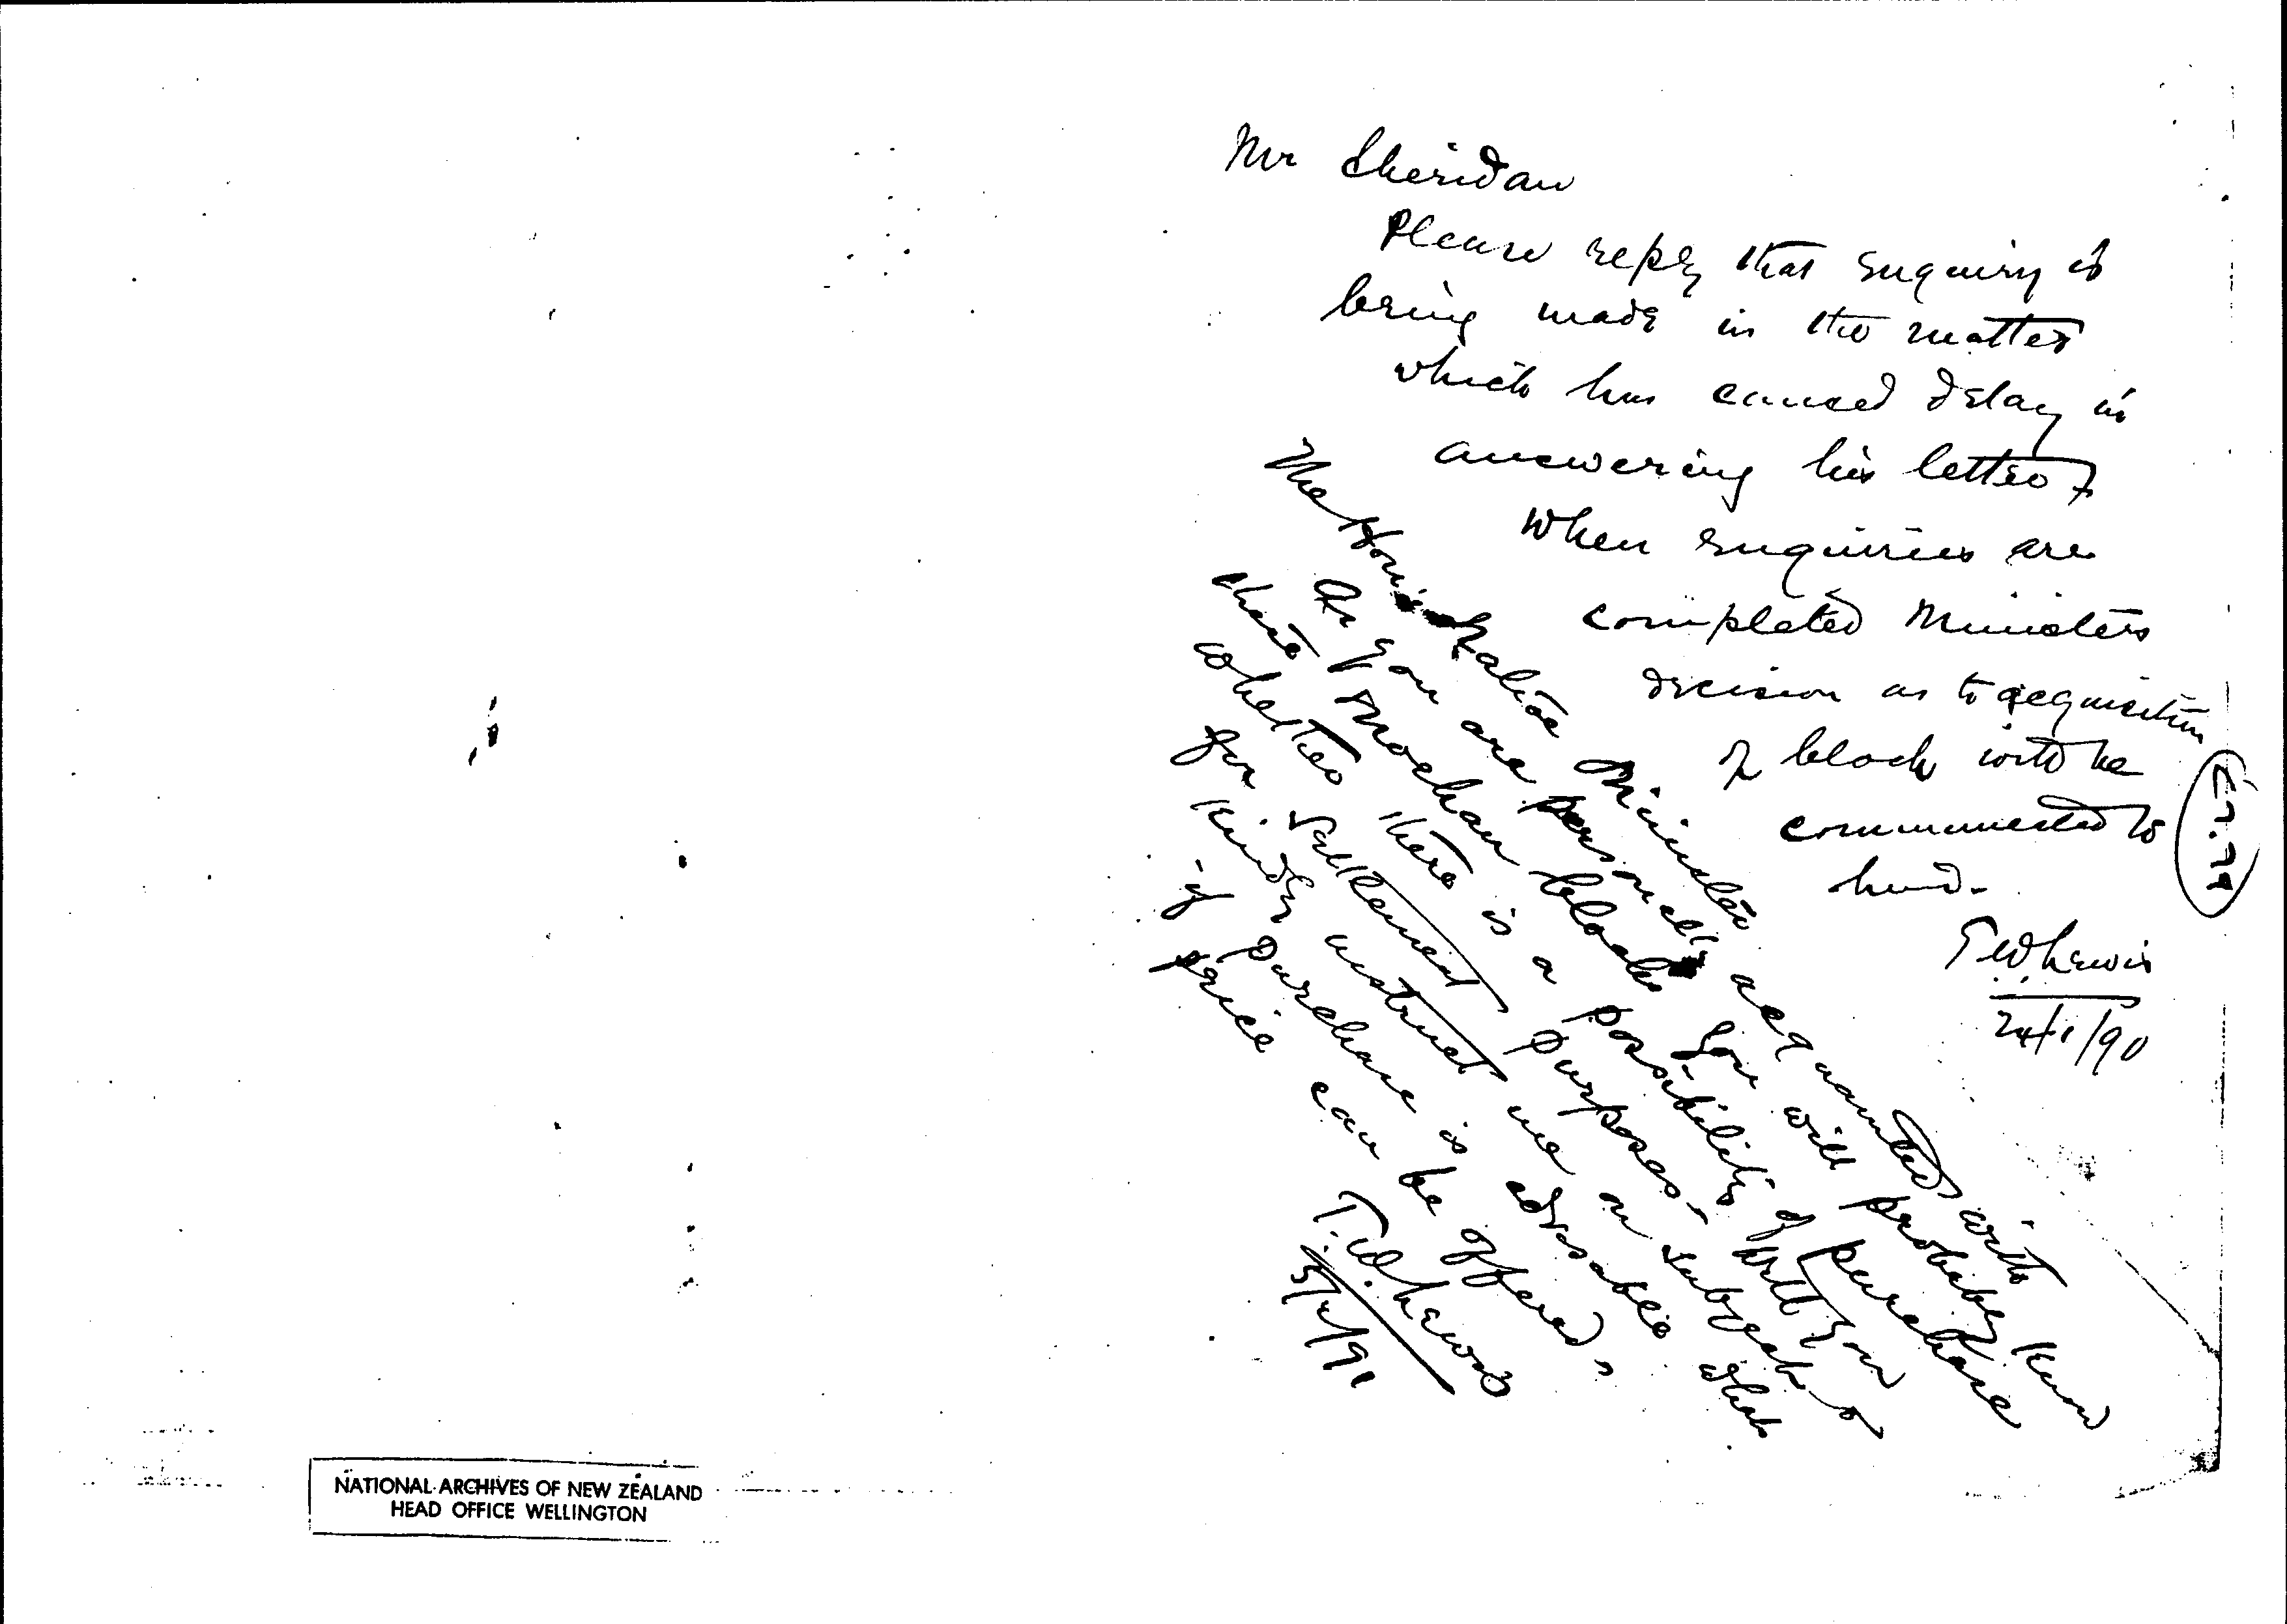 Mr Sheridan
Please reply that enquiry is
being made in the matter
which has caused delay in
answering his letter &
when enquiries are
completed Ministers
decision as to acquisition
of block will be
communicated to
him.
T W Lewis
24/1/90
The Hon Native Minister
As you are personally acquainted with
these Mochau blocks you will probably know
whether there is a possibility of purchase
for settlement purposes. Will you
kindly instruct me on subject &
if purchase is advisable what
price can be offered.
T.W. Lewis
5/2/91
NATIONAL ARCHIVES OF NEW ZEALAND
HEAD OFFICE WELLINGTON